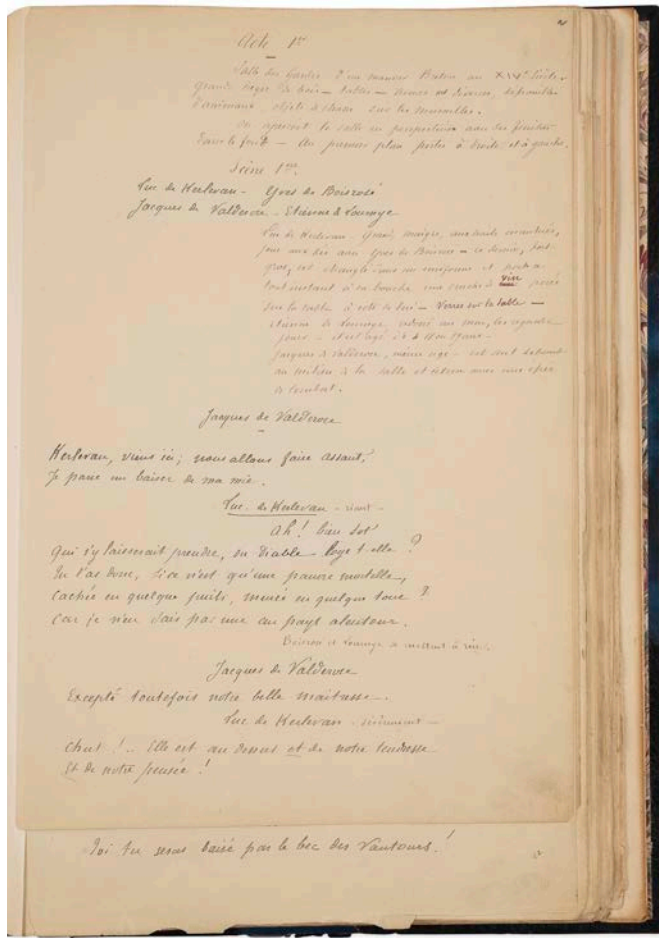 Acte 1er
Salle des Gardes d'un manoir Breton au XIVe siècle.
grands sièges de bois — tables — armes et divers, dépouilles
d'animaux, objets de chasse sur les murailles.
On aperçoit la salle en perspective avec des fenêtres
dans le fond — Au premier plan portes à droite et à gauche.
Scène 1ère.
Luc de Kerlevan — Yves de Boisrosé
Jacques de Valderose — Etienne de Lournye
Luc de Kerlevan. Grand, maigre,
joue aux dés avec Yves de Boisrosé — ce dernier, fort
gros, est étranglé dans son uniforme et porte à
tout instant à sa bouche une cruche de vin posée
sur la table à côté de lui — Verres sur la table —
Etienne de Lournye, adossé au mur, les regarde
jouer —
Jacques de Valderose, même âge — est seul debout
au milieu de la salle et avec une épée
de combat.
Jacques de Valderose
Kerlevan, viens ici ; nous allons faire assaut.
Je parie un baiser de ma mie.
Luc de Kerlevan — riant —
Ah ! bien sot
Qui s'y laisserait prendre, où diable loge-t-elle ?
Tu l'as donc, si ce n'est qu'une pauvre mortelle,
Cachée en quelque puits, murée en quelque tour ?
Car je n'en sais pas une au pays alentour.
Boisrosé et Lournye se mettent à rire.
Jacques de Valderose
Excepté toutefois notre belle maîtresse.
Luc de Kerlevan —
Chut !.. Elle est au dessus et de notre tendresse
Et de notre pensée !
Toi tu seras baisé par le bec des Vautours !